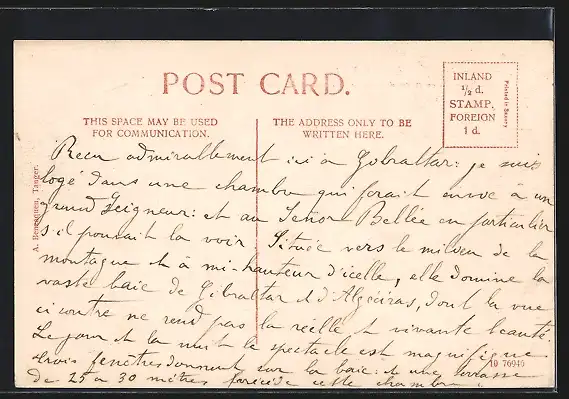 POST CARD.
THIS SPACE MAY BE USED
FOR COMMUNICATION.
THE ADDRESS ONLY TO BE
WRITTEN HERE.
INLAND
½ d.
STAMP.
FOREIGN
1 d.
Printed in Saxony
A. Benzaquen, Tanger.
Reçu admirablement ici à Gibraltar: je suis
logé dans une chambre qui ferait envie à un
grand Seigneur: et au Señor Bellée en particulier
s'il pouvait la voir. Située vers le milieu de la
montagne et à mi-hauteur d'icelle, elle domine la
vaste baie de Gibraltar et d'Algéciras, dont la vue
ci contre ne rend pas la réelle et vivante beauté.
Le jour et la nuit le spectacle est magnifique
trois fenêtres donnent sur la baie: et une terrasse
de 25 à 30 mètres précède cette chambre!
10 76946